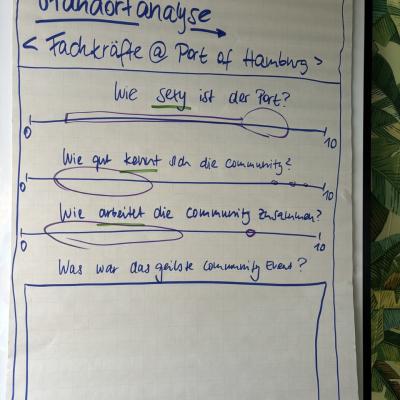 Standortanalyse
< Fachkräfte @ Port of Hamburg >
Wie sexy ist der Port?
0 10
Wie gut kennt sich die Community?
0 10
Wie arbeitet die Community zusammen?
0 10
Was war das geilste Community Event?